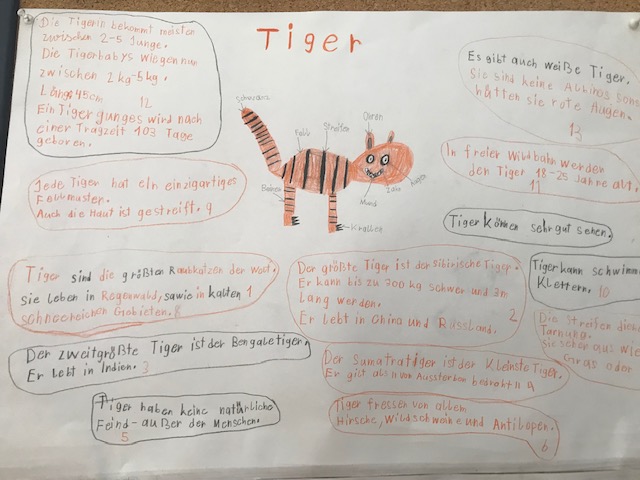 Tiger
Die Tigerin bekommt meisten
zwischen 2-5 Junge.
Die Tigerbabys wiegen nur
zwischen 2 kg-5kg.
Länge 45cm
12
Ein Tiger gunges wird nach
einer Tragzeit 103 Tage
geboren.
Schwanz
Fell
Streifen
Ohren
Beine
Mund
Krallen
Es gibt auch weiße Tiger.
Sie sind keine Albinos sons
hätten sie rote Augen.
13
In freier Wildbahn werden
den Tiger 18-25 Jahre alt.
11
Jede Tiger hat ein einzigartiges
Fellmuster.
Auch die Haut ist gestreift. 9
Tiger können sehr gut sehen.
Tiger kann schwimm
Klettern. 10
Tiger sind die größten Raubkatzen der Welt.
sie leben in Regenwald, sawie in kalten 1
schneereichen Gebieten. 8
Der größte Tiger ist der Sibirische Tiger.
Er kann bis zu 300 kg schwer und 3m
Lang werden.
Er lebt in China und Russland.
2
Die Streifen die
Tarnung.
Sie sehen aus wie
Gras oder
Der zweitgrößte Tiger ist der Bengaletiger.
Er lebt in Indien. 3
Der Sumatratiger ist der Kleinste Tiger.
Er gilt als vom Aussterben bedroht
Tiger haben keine natürliche
Feind - außer der Menschen.
5
Tiger fressen von allem
Hirsche, Wildschweine und Antilopen.
6